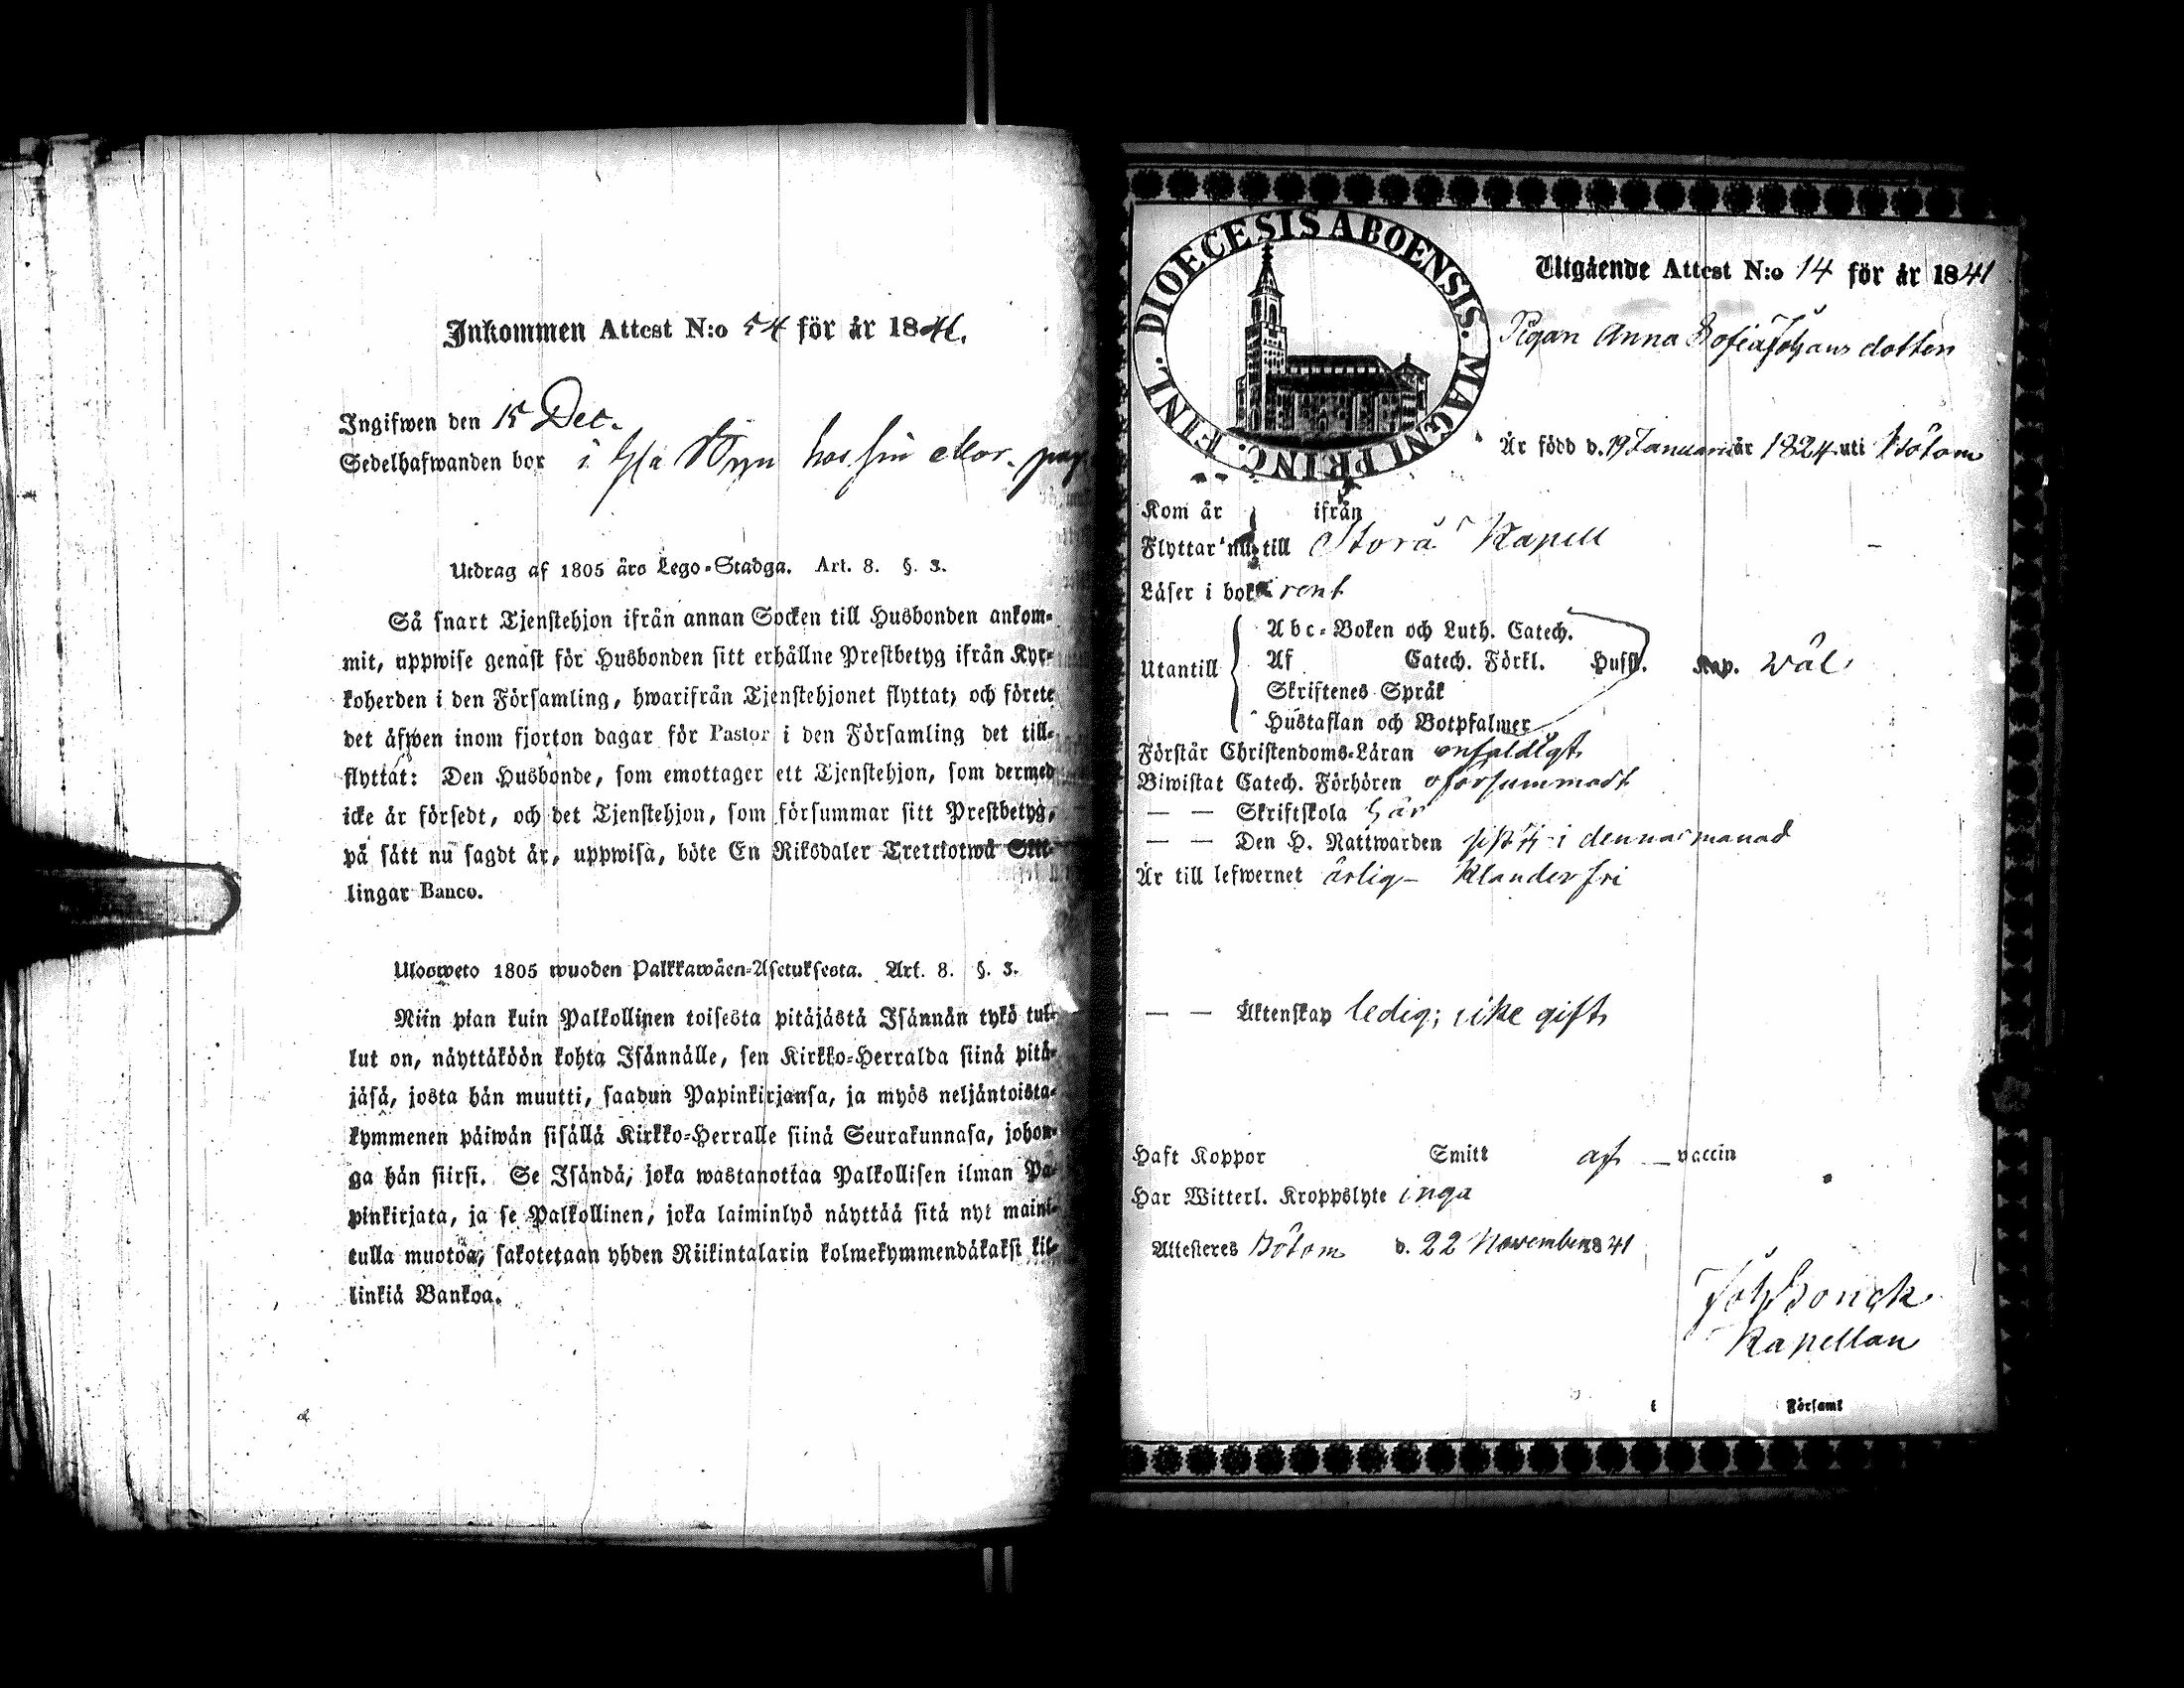 Inkommen Attest N:o 54 för år 1841.
Ingifwen den 15 Dec.
Sedelhafwanden bor i byn hos sin Mor. pag
Utdrag af 1805 års Lego-Stadga. Art. 8. §. 3.
Så snart Tjenstehjon ifrån annan Socken till Husbonden ankom-
mit, uppwise genast för Husbonden sitt erhållne Prestbetyg ifrån Kyr-
koherden i den Församling, hwarifrån Tjenstehjonet flyttat; och förete
det äfwen inom fjorton dagar för Pastor i den Församling det till-
flyttat: Den Husbonde, som emottager ett Tjenstehjon, som dermed
icke är försedt, och det Tjenstehjon, som försummar sitt Prestbetyg,
på sätt nu sagdt är, uppwisa, böte En Riksdaler Trettiotwå Skil-
lingar Banco.
Uloosweto 1805 wuoden Palkkawäen-Asetuksesta. Art. 8. §. 3.
Niin pian kuin Palkollinen toisesta pitäjästä Isännän tykö tul-
lut on, näyttäköön kohta Isännälle, sen Kirkko-Herralda siinä pitä-
jäsä, josta hän muutti, saadun Papinkirjansa, ja myös neljäntoista-
kymmenen päiwän sisällä Kirkko-Herralle siinä Seurakunnasa, johon-
ga hän siirsi. Se Isändä, joka wastanottaa Palkollisen ilman Pa-
pinkirjata, ja se Palkollinen, joka laiminlyö näyttää sitä nyt maini-
tulla muotoa, sakotetaan yhden Riikintalarin kolmekymmendäkaksi kil-
linkiä Bankoa.
DIOECESIS ABOENSIS. MAGNI PRINC. FINL.
Utgående Attest N:o 14 för år 1841
Pigan Anna Sofia Johansdotter
Är född d. 19 Januari år 1824 uti Bötom
Kom år ifrån
Flyttar nu till Storå Kapell
Läser i bok rent
Abc-Boken och Luth. Catech.
Utantill Af Catech. Förkl. Husfl. Kap. wäl
Skriftenes Språk
Hustaflan och Botpsalmer
Förstår Christendoms-Läran enfaldigt
Biwistat Catech. Förhören oförsummadt
— — Skriftskola här
— — Den H. Nattwarden sist i denna manad
Är till lefwernet ärlig - Klanderfri
— — Äktenskap ledig; icke gift
Haft Koppor Smitt af vaccin
Har Witterl. Kroppslyte inga
Attesteres Bötom d. 22 November 1841
Joh Bonck
Kapellan
i Församl